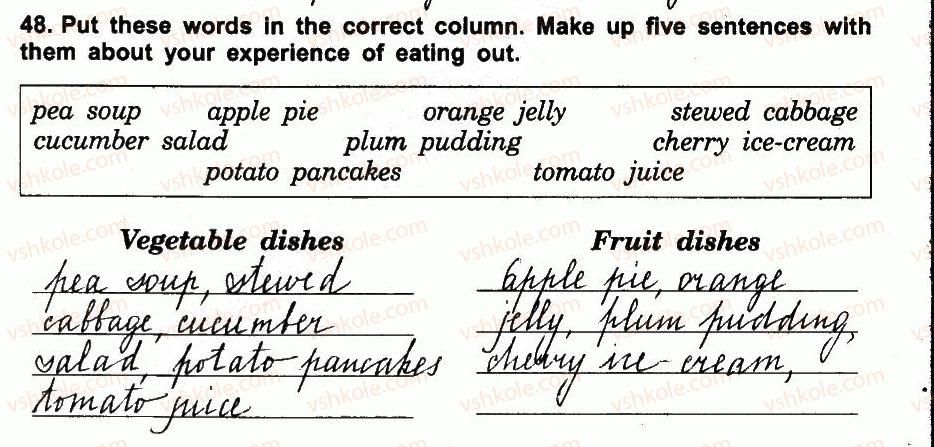 48. Put these words in the correct column. Make up five sentences with
them about your experience of eating out.
pea soup apple pie orange jelly stewed cabbage
cucumber salad plum pudding cherry ice-cream
potato pancakes tomato juice
Vegetable dishes
pea soup, stewed
cabbage, cucumber
salad, potato pancakes
tomato juice
Fruit dishes
apple pie, orange
jelly, plum pudding,
cherry ice-cream,
vshkole.com